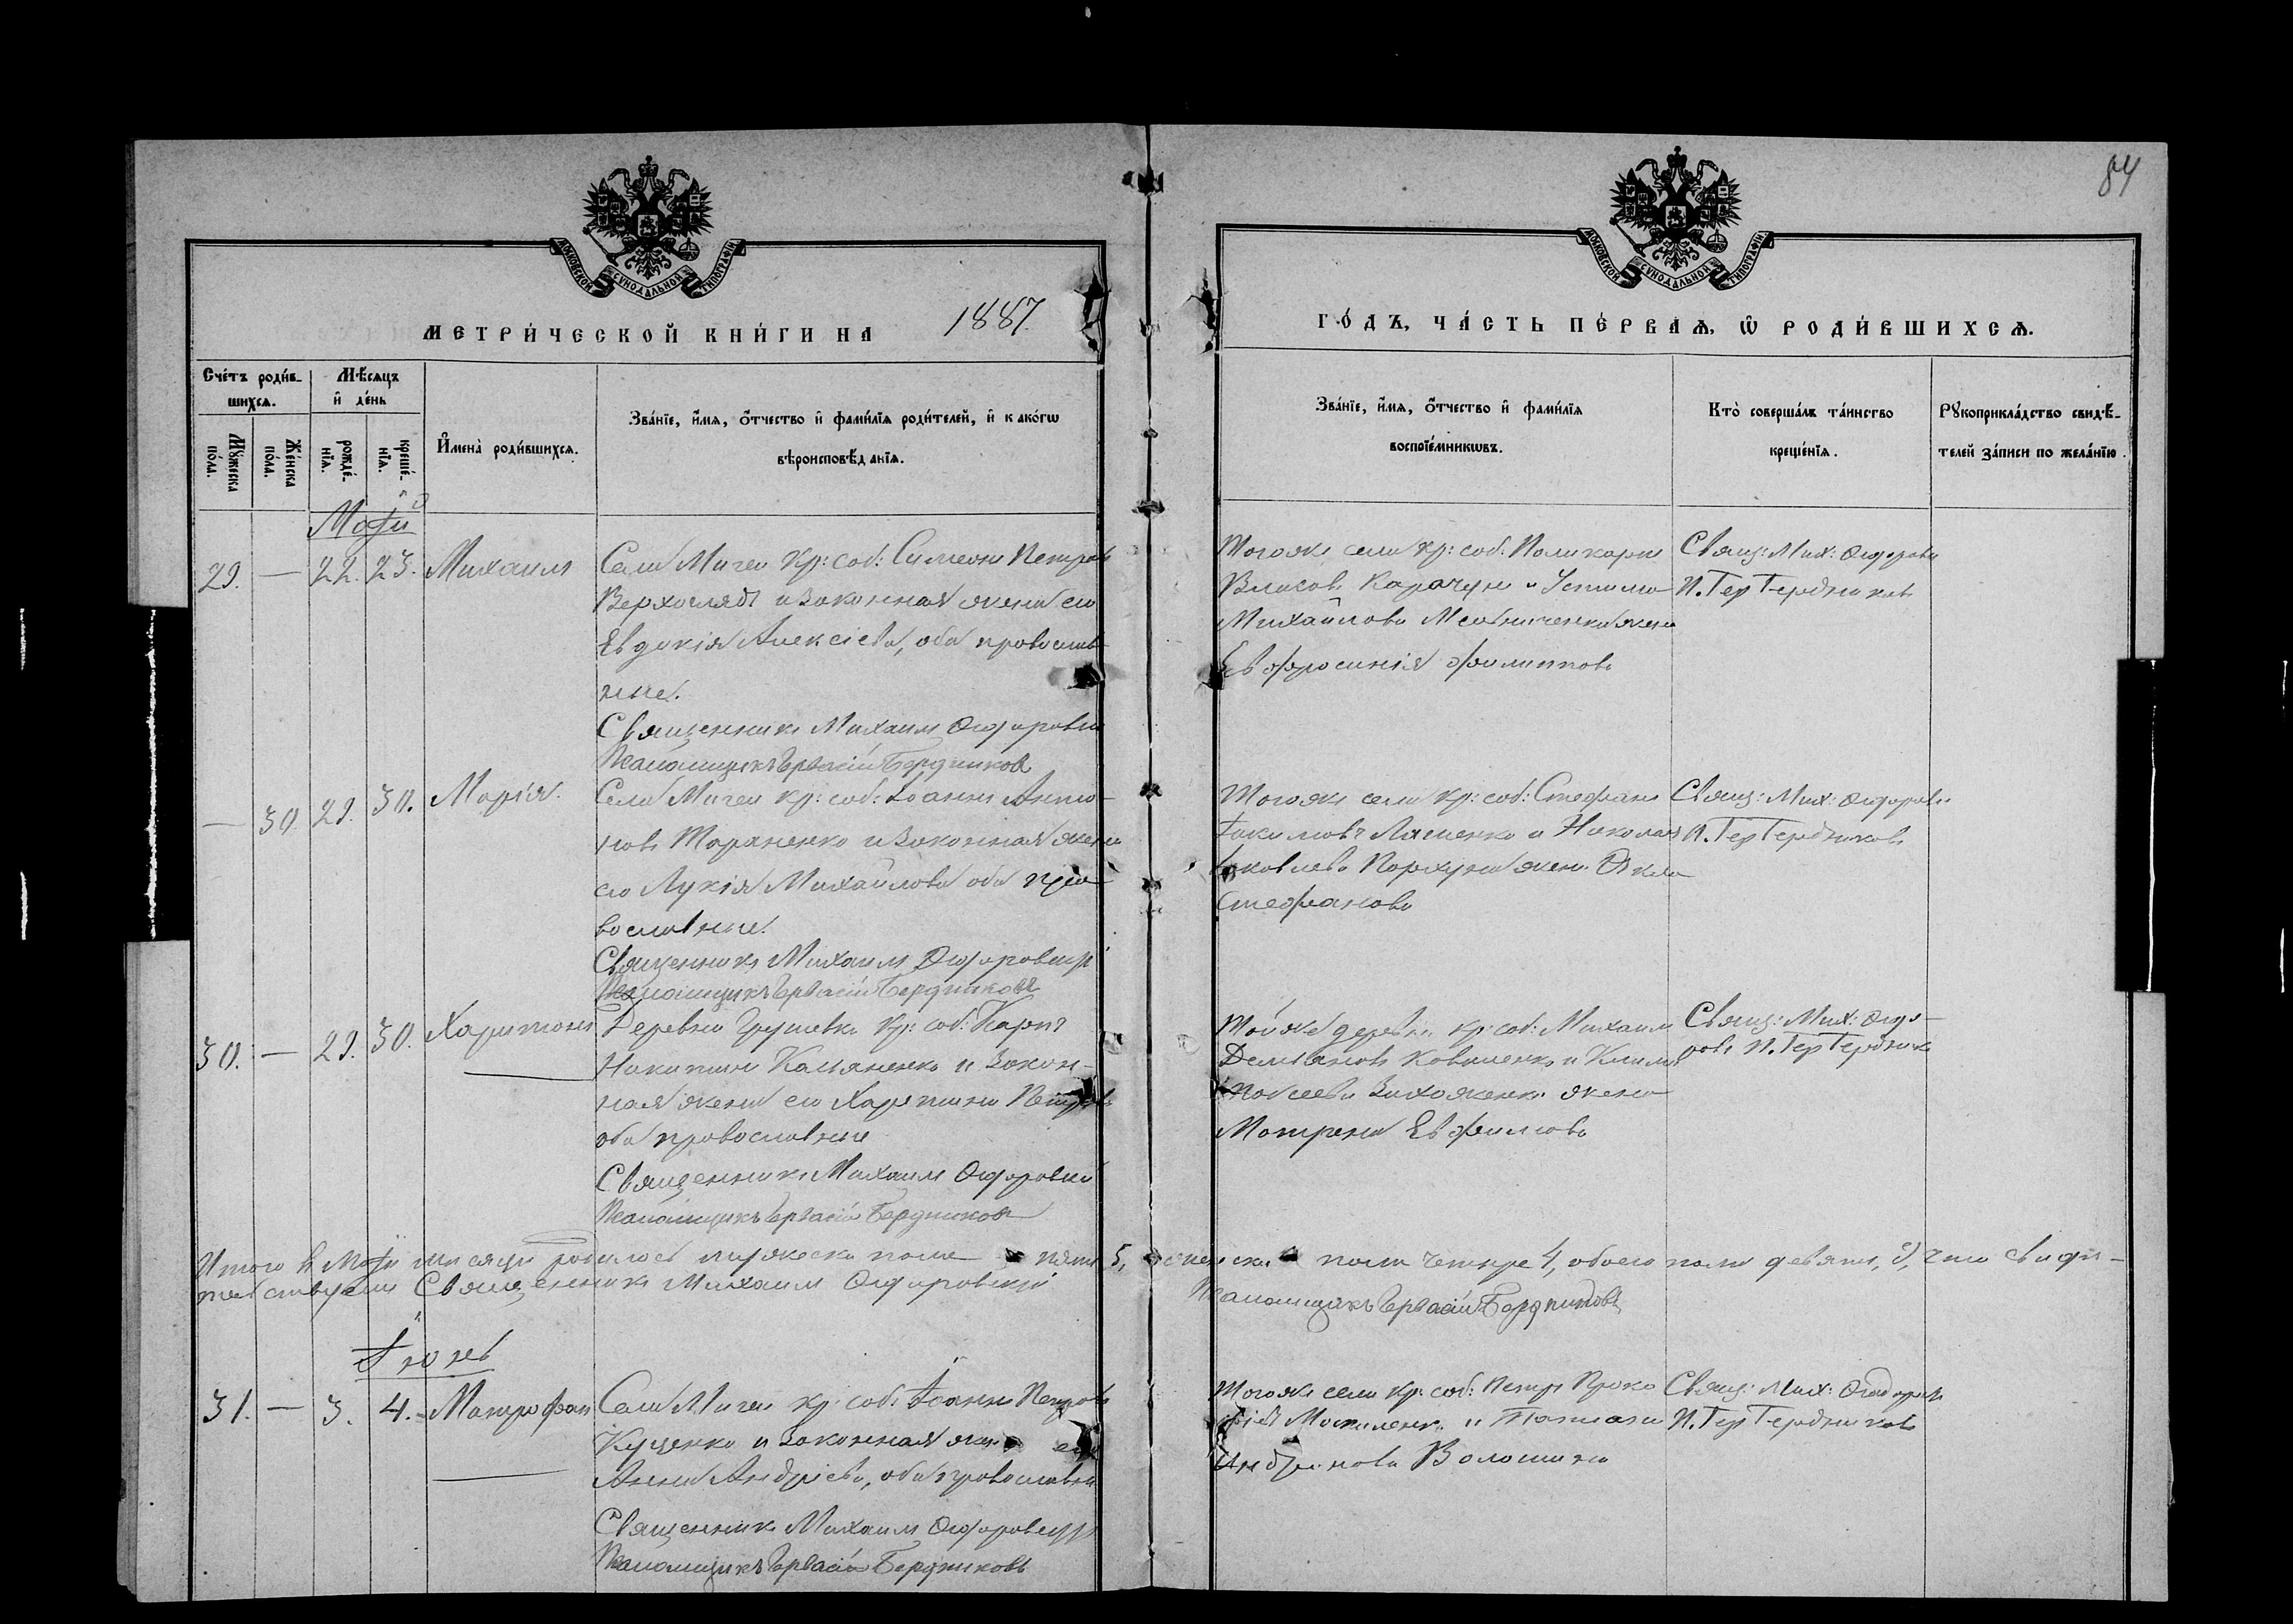 84
МОСКОВСКОЙ СУНОДАЛЬНОЙ ТИПОГРАФІИ
МОСКОВСКОЙ СУНОДАЛЬНОЙ ТИПОГРАФІИ
МЕТРИ́ЧЕСКОЙ КНИ́ГИ НА 1887.
ГО́ДЪ, ЧА́СТЬ ПЕ́РВАѦ, Ѿ РОДИ́ВШИХСѦ.
Сче́тъ роди́вшихсѧ.
Мꙋ́жеска по́ла.
Же́нска по́ла.
Мѣ́сѧцъ и҆ де́нь
рожде́нїѧ.
креще́нїѧ.
И҆мена̀ роди́вшихсѧ.
Зва́нїе, и҆́мѧ, ѻ҆́тчество и҆ фами́лїѧ роди́телей, и҆ како́гѡ
вѣроисповѣ́данїѧ.
Зва́нїе, и҆́мѧ, ѻ҆́тчество и҆ фами́лїѧ
воспрїе́мникѡвъ.
Кто̀ соверша́лъ та́инство
креще́нїѧ.
Рꙋкоприкла́дство свидѣ́-
телей за́писи по жела́нїю.
Май
29. — 22. 23. Михаилъ
Села Мигеи кр: соб: Симеонъ Петровъ
Верхоглядъ и законная жена его
Евдокія Алексіева, оба православ-
ные.
Священникъ Михаилъ
Псаломщикъ Гервасій Бердниковъ
Тогоже села кр: соб: Поликарпъ
Власовъ Карачунъ и
Михайлова Мельниченка жена
Евфросинія Филиппова
Свящ: Мих:
П. Гер Бердниковъ
— 30. 29. 30. Марія.
Села Мигеи кр: соб: Іоаннъ Анто-
новъ Тараненко и законная жена
его Лукія Михайлова оба пра-
вославные.
Священникъ Михаилъ
Псаломщикъ Гервасій Бердниковъ
Тогоже села кр: соб: Стефанъ
Ляшенко и Николая
Яковлева жена
Стефанова
Свящ: Мих:
П. Гер Бердниковъ
30. — 29. 30. Харитонъ
Деревни Грушевки кр: соб: Карпъ
Никитинъ Касьяненко и закон-
ная жена его Харитина Петрова
оба православные
Священникъ Михаилъ
Псаломщикъ Гервасій Бердниковъ
Тойже деревни кр: соб: Михаилъ
Демьяновъ Коваленко и
жена
Матрена Евфимова
Свящ: Мих:
П. Гер Бердник
Итого въ Май мѣсяцѣ родилось мужеска пола пять 5, женска пола четыре 4, обоего пола девять, 9, что свидѣ-
тельствуемъ Священникъ Михаилъ
Псаломщикъ Гервасій Бердниковъ
Іюнь
31. — 3. 4. Митрофанъ
Села Мигеи кр: соб: Іоаннъ Петровъ
Куценко и законная жена его
Анна Андріева, оба православны
Священникъ Михаилъ
Псаломщикъ Гервасій Бердниковъ
Тогоже села кр: соб: Петръ Проко
и Татіана
Волошина
Свящ: Мих:
П. Гер Бердниковъ